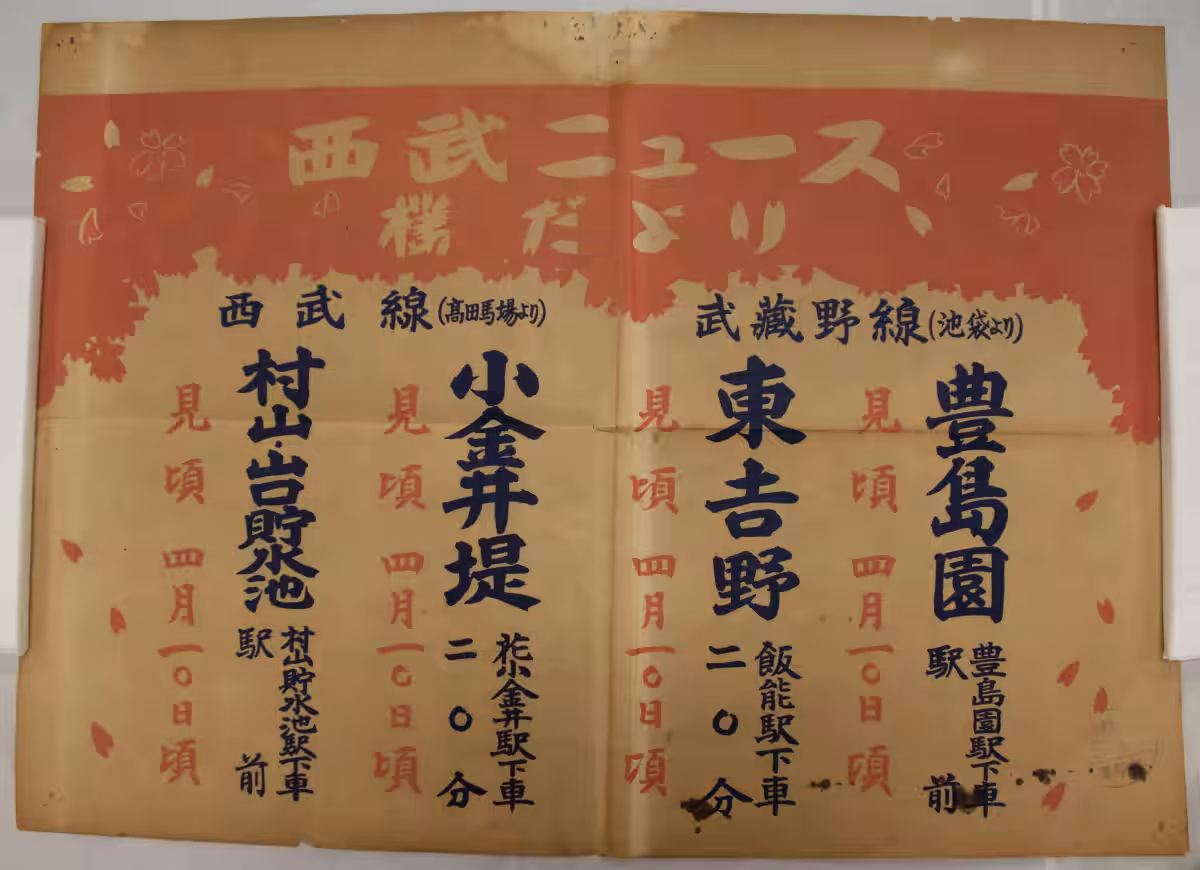 西武ニュース
櫻だより
武藏野線(池袋より)
豊島園
豊島園駅下車
駅前
見頃 四月一〇日頃
東吉野
飯能駅下車
二〇分
見頃 四月一〇日頃
西武線(高田馬場より)
小金井堤
花小金井駅下車
二〇分
見頃 四月一〇日頃
村山・山口貯水池
村山貯水池駅下車
駅前
見頃 四月一〇日頃